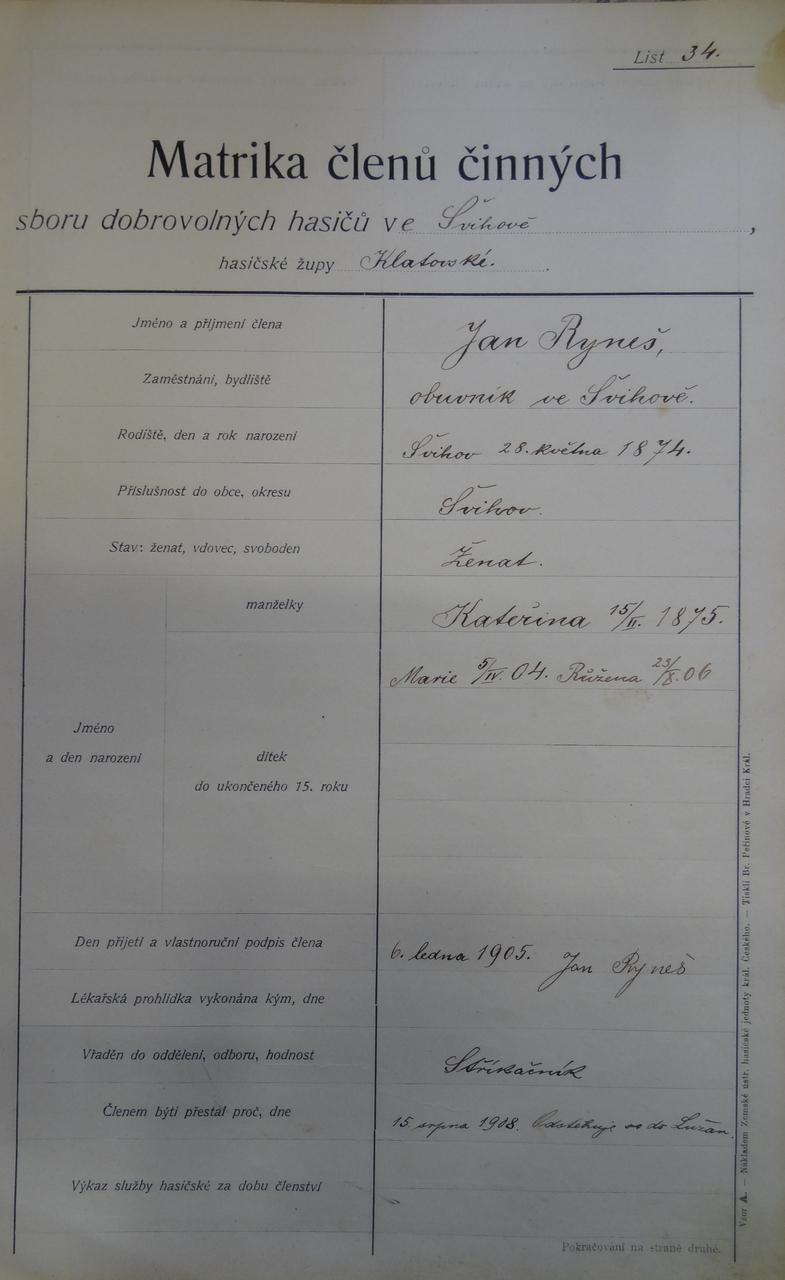 List 34.
Matrika členů činných
sboru dobrovolných hasičů ve Švihově,
hasičské župy Klatovské.
Jméno a příjmení člena Jan Ryneš,
Zaměstnání, bydliště obuvník ve Švihově.
Rodiště, den a rok narození Švihov 28. května 1874.
Příslušnost do obce, okresu Švihov.
Stav: ženat, vdovec, svoboden Ženat.
manželky Kateřina 15/II. 1875.
Marie 5/IV. 04. Růžena 23/X. 06
Jméno
a den narození
dítek
do ukončeného 15. roku
Den přijetí a vlastnoruční podpis člena 6. ledna 1905. Jan Ryneš
Lékařská prohlídka vykonána kým, dne
Vřaděn do oddělení, odboru, hodnost Stříkačník
Členem býti přestal proč, dne 15 srpna 1908. Odstěhuje se do Lužan.
Výkaz služby hasičské za dobu členství
Pokračování na straně druhé.
Vzor A. — Nákladem Zemské ústř. hasičské jednoty král. Českého. — Tiskli Br. Peřinové v Hradci Král.